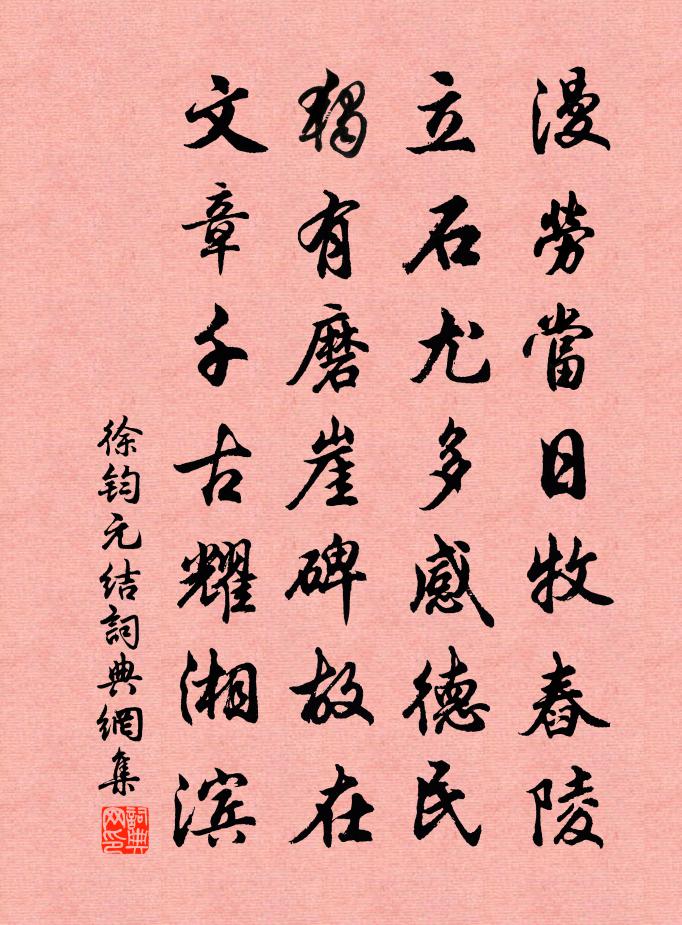 漫勞當日牧舂陵
立石尤多感德民
獨有磨崖碑故在
文章千古耀湘滨
徐鈞元结詞典網集
詞典网印